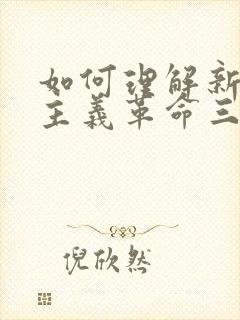 如何理解新
主义革命三
倪欣然